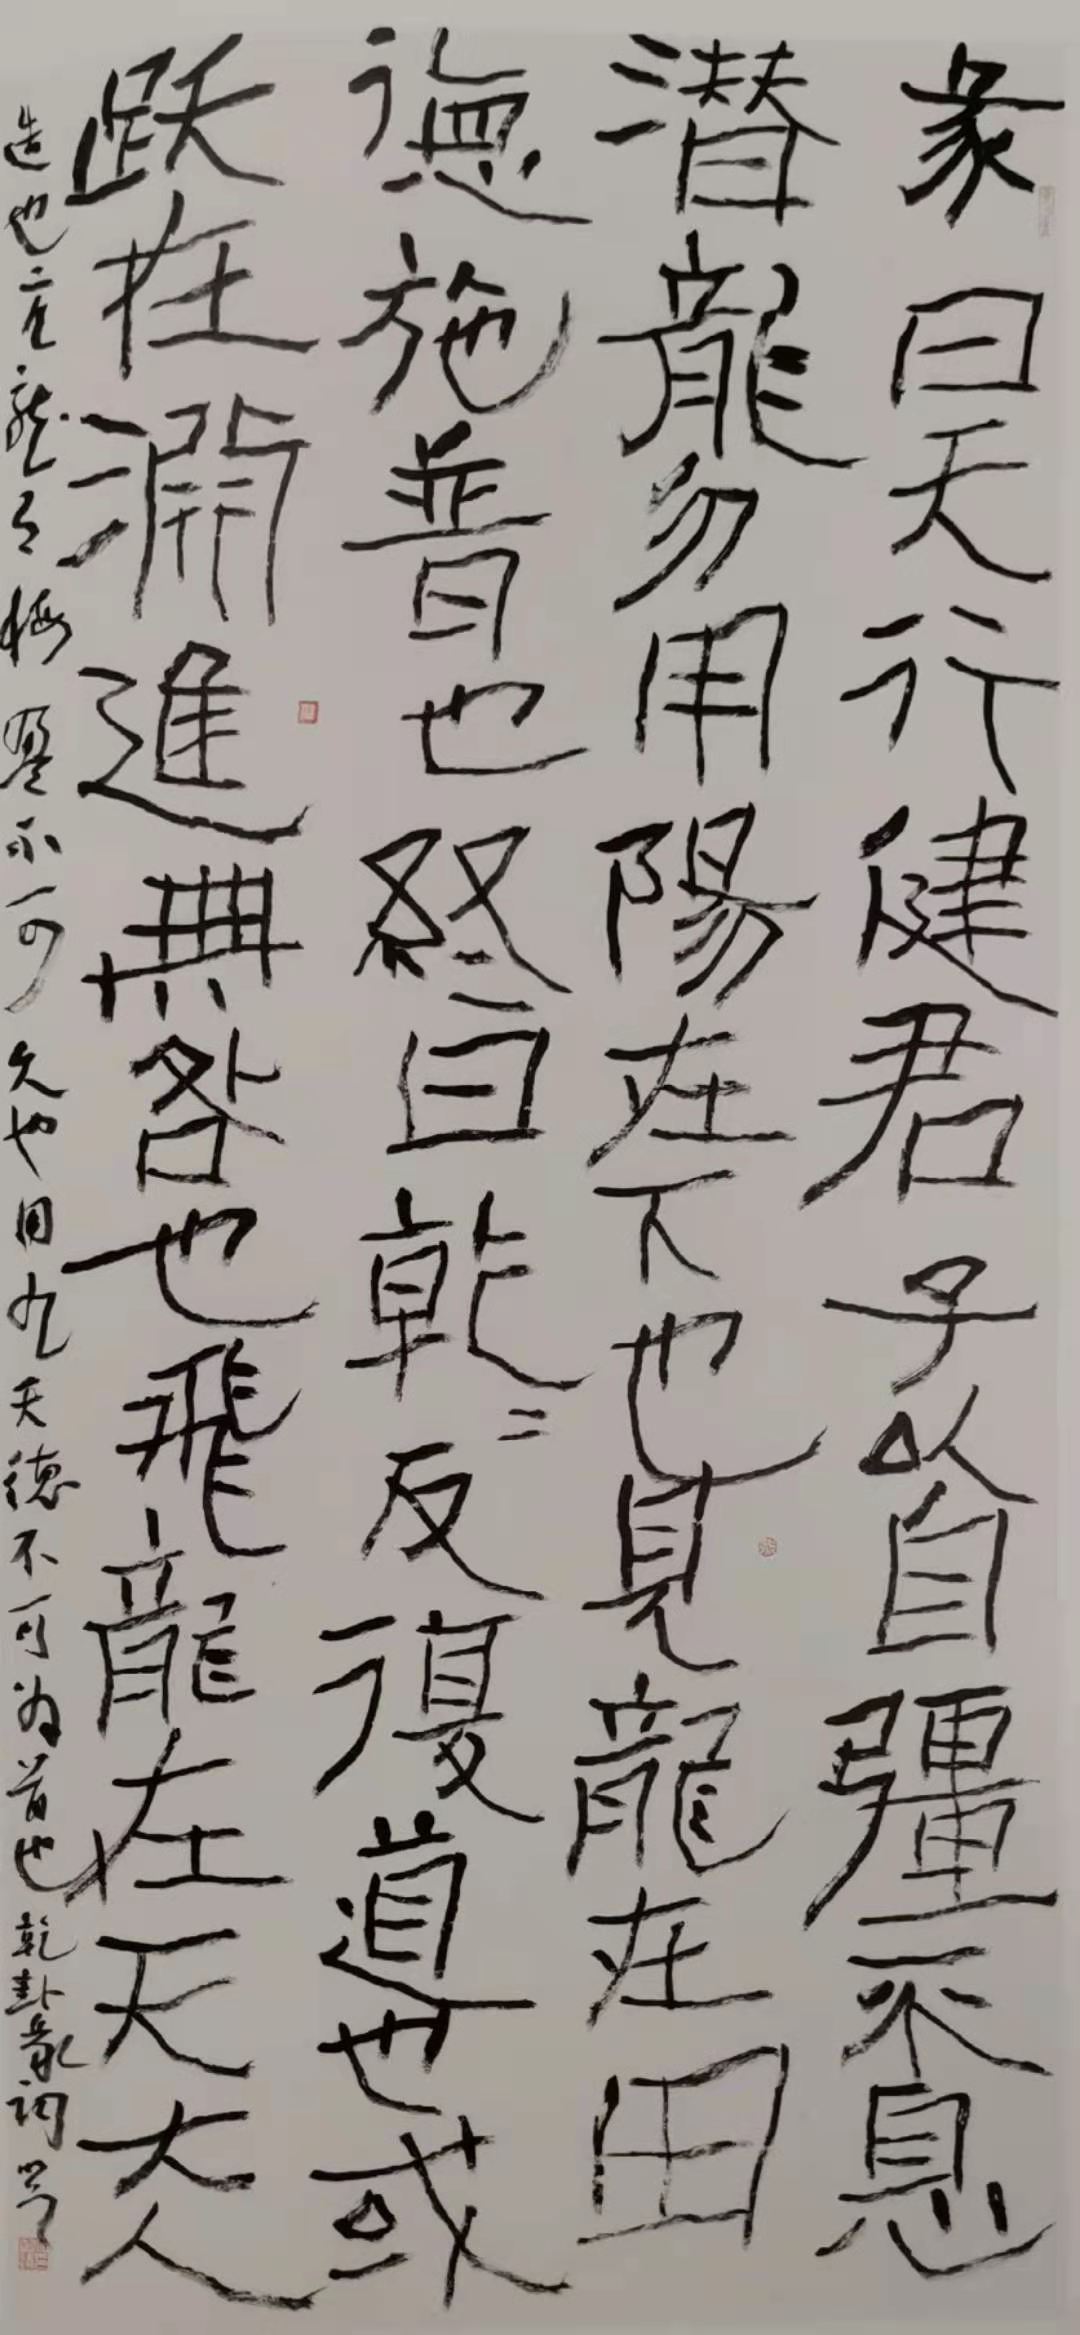 彖曰天行健君子以自彊不息
潜龍勿用陽在下也見龍在田
徳施普也終日乾二反復道也或
跃在淵進無咎也飛龍在天大人
造也亢龍有悔盈不可久也用九天德不可为首也 乾卦彖词